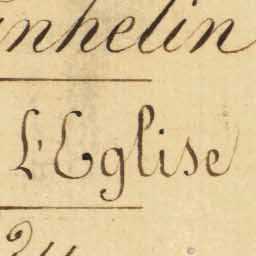 nhelin
L'Eglise